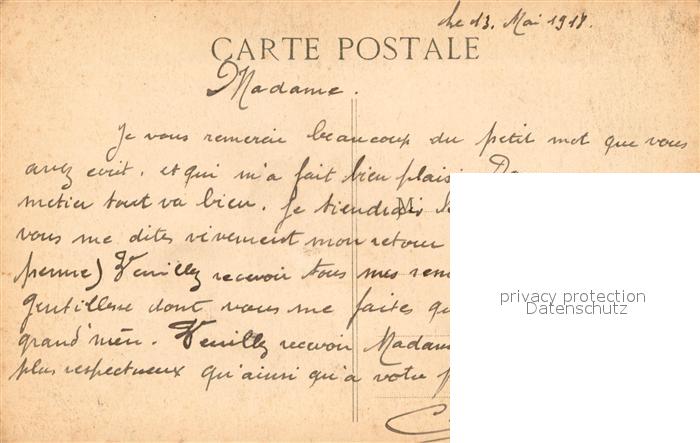 le 13. Mai 1918.
CARTE POSTALE
Madame.
Je vous remercie beaucoup du petit mot que vous
avez ecrit. et qui m'a fait bien plaisir
metier tout va bien. Je tiendrai
M
vous me dites vivement mon retour
Veuillez recevoir tous mes
gentillesse dont vous me faites
grand'mère. Veuillez recevoir Madame
plus respectueux qu'ainsi qu'a votre
privacy protection
Datenschutz